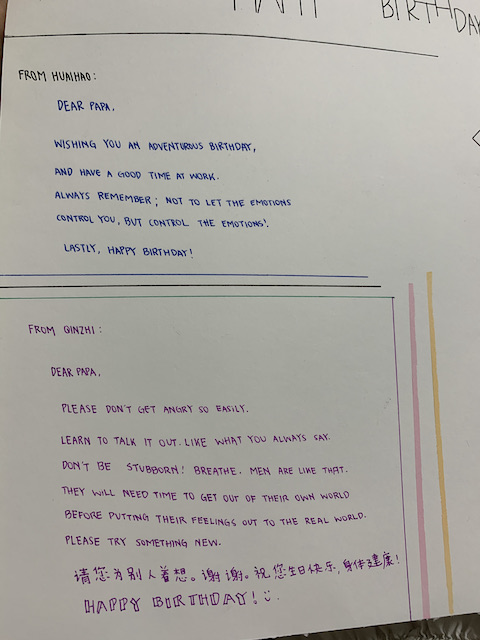 BIRTHDAY
FROM HUAIHAO:
DEAR PAPA,
WISHING YOU AN ADVENTUROUS BIRTHDAY,
AND HAVE A GOOD TIME AT WORK.
ALWAYS REMEMBER; NOT TO LET THE EMOTIONS
CONTROL YOU, BUT CONTROL THE EMOTIONS!
LASTLY, HAPPY BIRTHDAY!
FROM QINZHI:
DEAR PAPA,
PLEASE DON'T GET ANGRY SO EASILY.
LEARN TO TALK IT OUT. LIKE WHAT YOU ALWAYS SAY.
DON'T BE STUBBORN! BREATHE. MEN ARE LIKE THAT.
THEY WILL NEED TIME TO GET OUT OF THEIR OWN WORLD
BEFORE PUTTING THEIR FEELINGS OUT TO THE REAL WORLD.
PLEASE TRY SOMETHING NEW.
请您为别人着想。谢谢。祝您生日快乐,身体建康!
HAPPY BIRTHDAY! :)